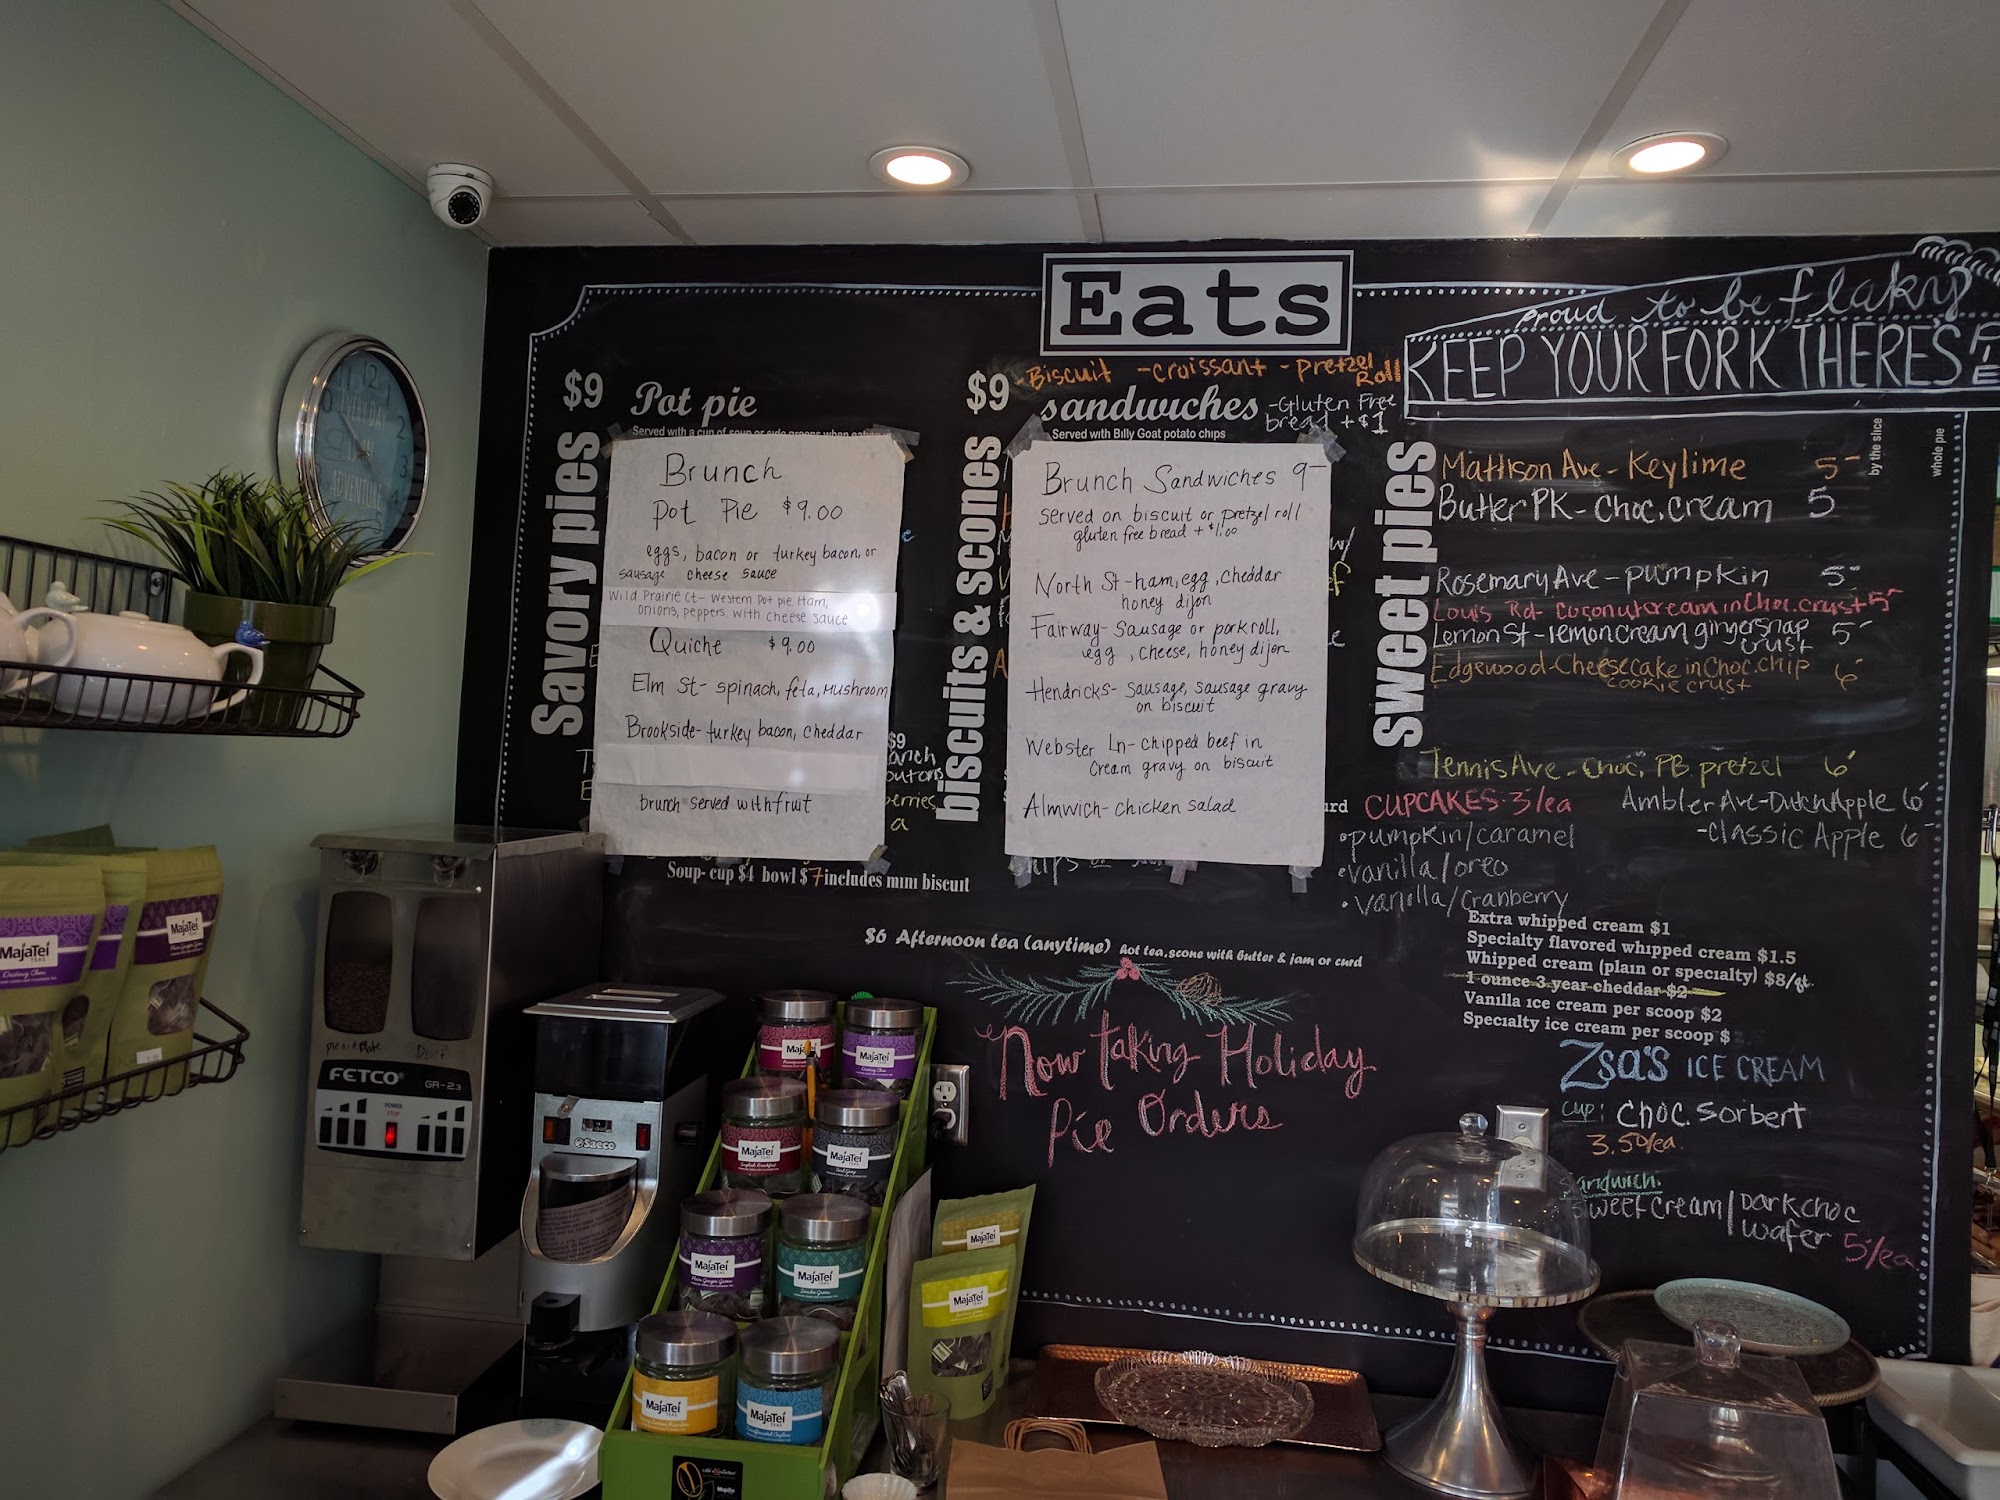 Eats
proud to be flaky
KEEP YOUR FORK THERES PIE
Savory pies
$9 Pot pie
Served with a cup of soup or side greens when
Brunch
Pot Pie $9.00
eggs, bacon or turkey bacon, or
sausage cheese sauce
Wild Prairie Ct- Western Pot pie. Ham,
onions, peppers. with cheese sauce
Quiche $9.00
Elm St- spinach, feta, Mushroom
Brookside- turkey bacon, cheddar
brunch served with fruit
$9
berries
a
Soup- cup $4 bowl $7 includes mini biscuit
biscuits & scones
-Biscuit -croissant -pretzel
Roll
$9 sandwiches -Gluten Free
bread +$1
Served with Billy Goat potato chips
Brunch Sandwiches 9-
Served on biscuit or pretzel roll
gluten free bread +$1.00
North St-ham, egg, cheddar
honey dijon
Fairway- Sausage or pork roll,
egg, cheese, honey dijon
Hendricks- Sausage, sausage gravy
on biscuit
Webster Ln- chipped beef in
cream gravy on biscuit
Almwich- chicken salad
w/
urd
$6 Afternoon tea (anytime) hot tea, scone with butter & jam or curd
Now Taking Holiday
Pie Orders
sweet pies
by the slice
whole pie
Mattison Ave - Keylime 5-
Butter PK - Choc. cream 5
Rosemary Ave - pumpkin 5-
Louis Rd- Coconut cream in Choc. crust 5-
Lemon St - lemon cream gingersnap 5-
crust
Edgewood-Cheesecake in Choc. chip 6-
cookie crust
Tennis Ave - Choc. PB pretzel 6-
CUPCAKES 3-/ea
•pumpkin/caramel
•vanilla/oreo
•vanilla/Cranberry
Ambler Ave-Dutch Apple 6-
-Classic Apple 6-
Extra whipped cream $1
Specialty flavored whipped cream $1.5
Whipped cream (plain or specialty) $8/qt.
1 ounce 3 year cheddar $2
Vanilla ice cream per scoop $2
Specialty ice cream per scoop $
Zsa's ICE CREAM
cup: Choc. Sorbert
3.50/ea.
Sandwich:
Sweet Cream/Dark choc
wafer 5-/ea
12
11
2
3
4
EVERY DAY
IS AN
ADVENTURE
FETCO GR-2.3
POWER
STOP
Saeco
MajaTei
TEAS
MajaTei
TEAS
Destiny Chai
MajaTei
MajaTei
MajaTei
English Breakfast
MajaTei
Earl Grey
MajaTei
MajaTei
MajaTei
TEAS
MajaTei
TEAS
MajaTei
MajaTei